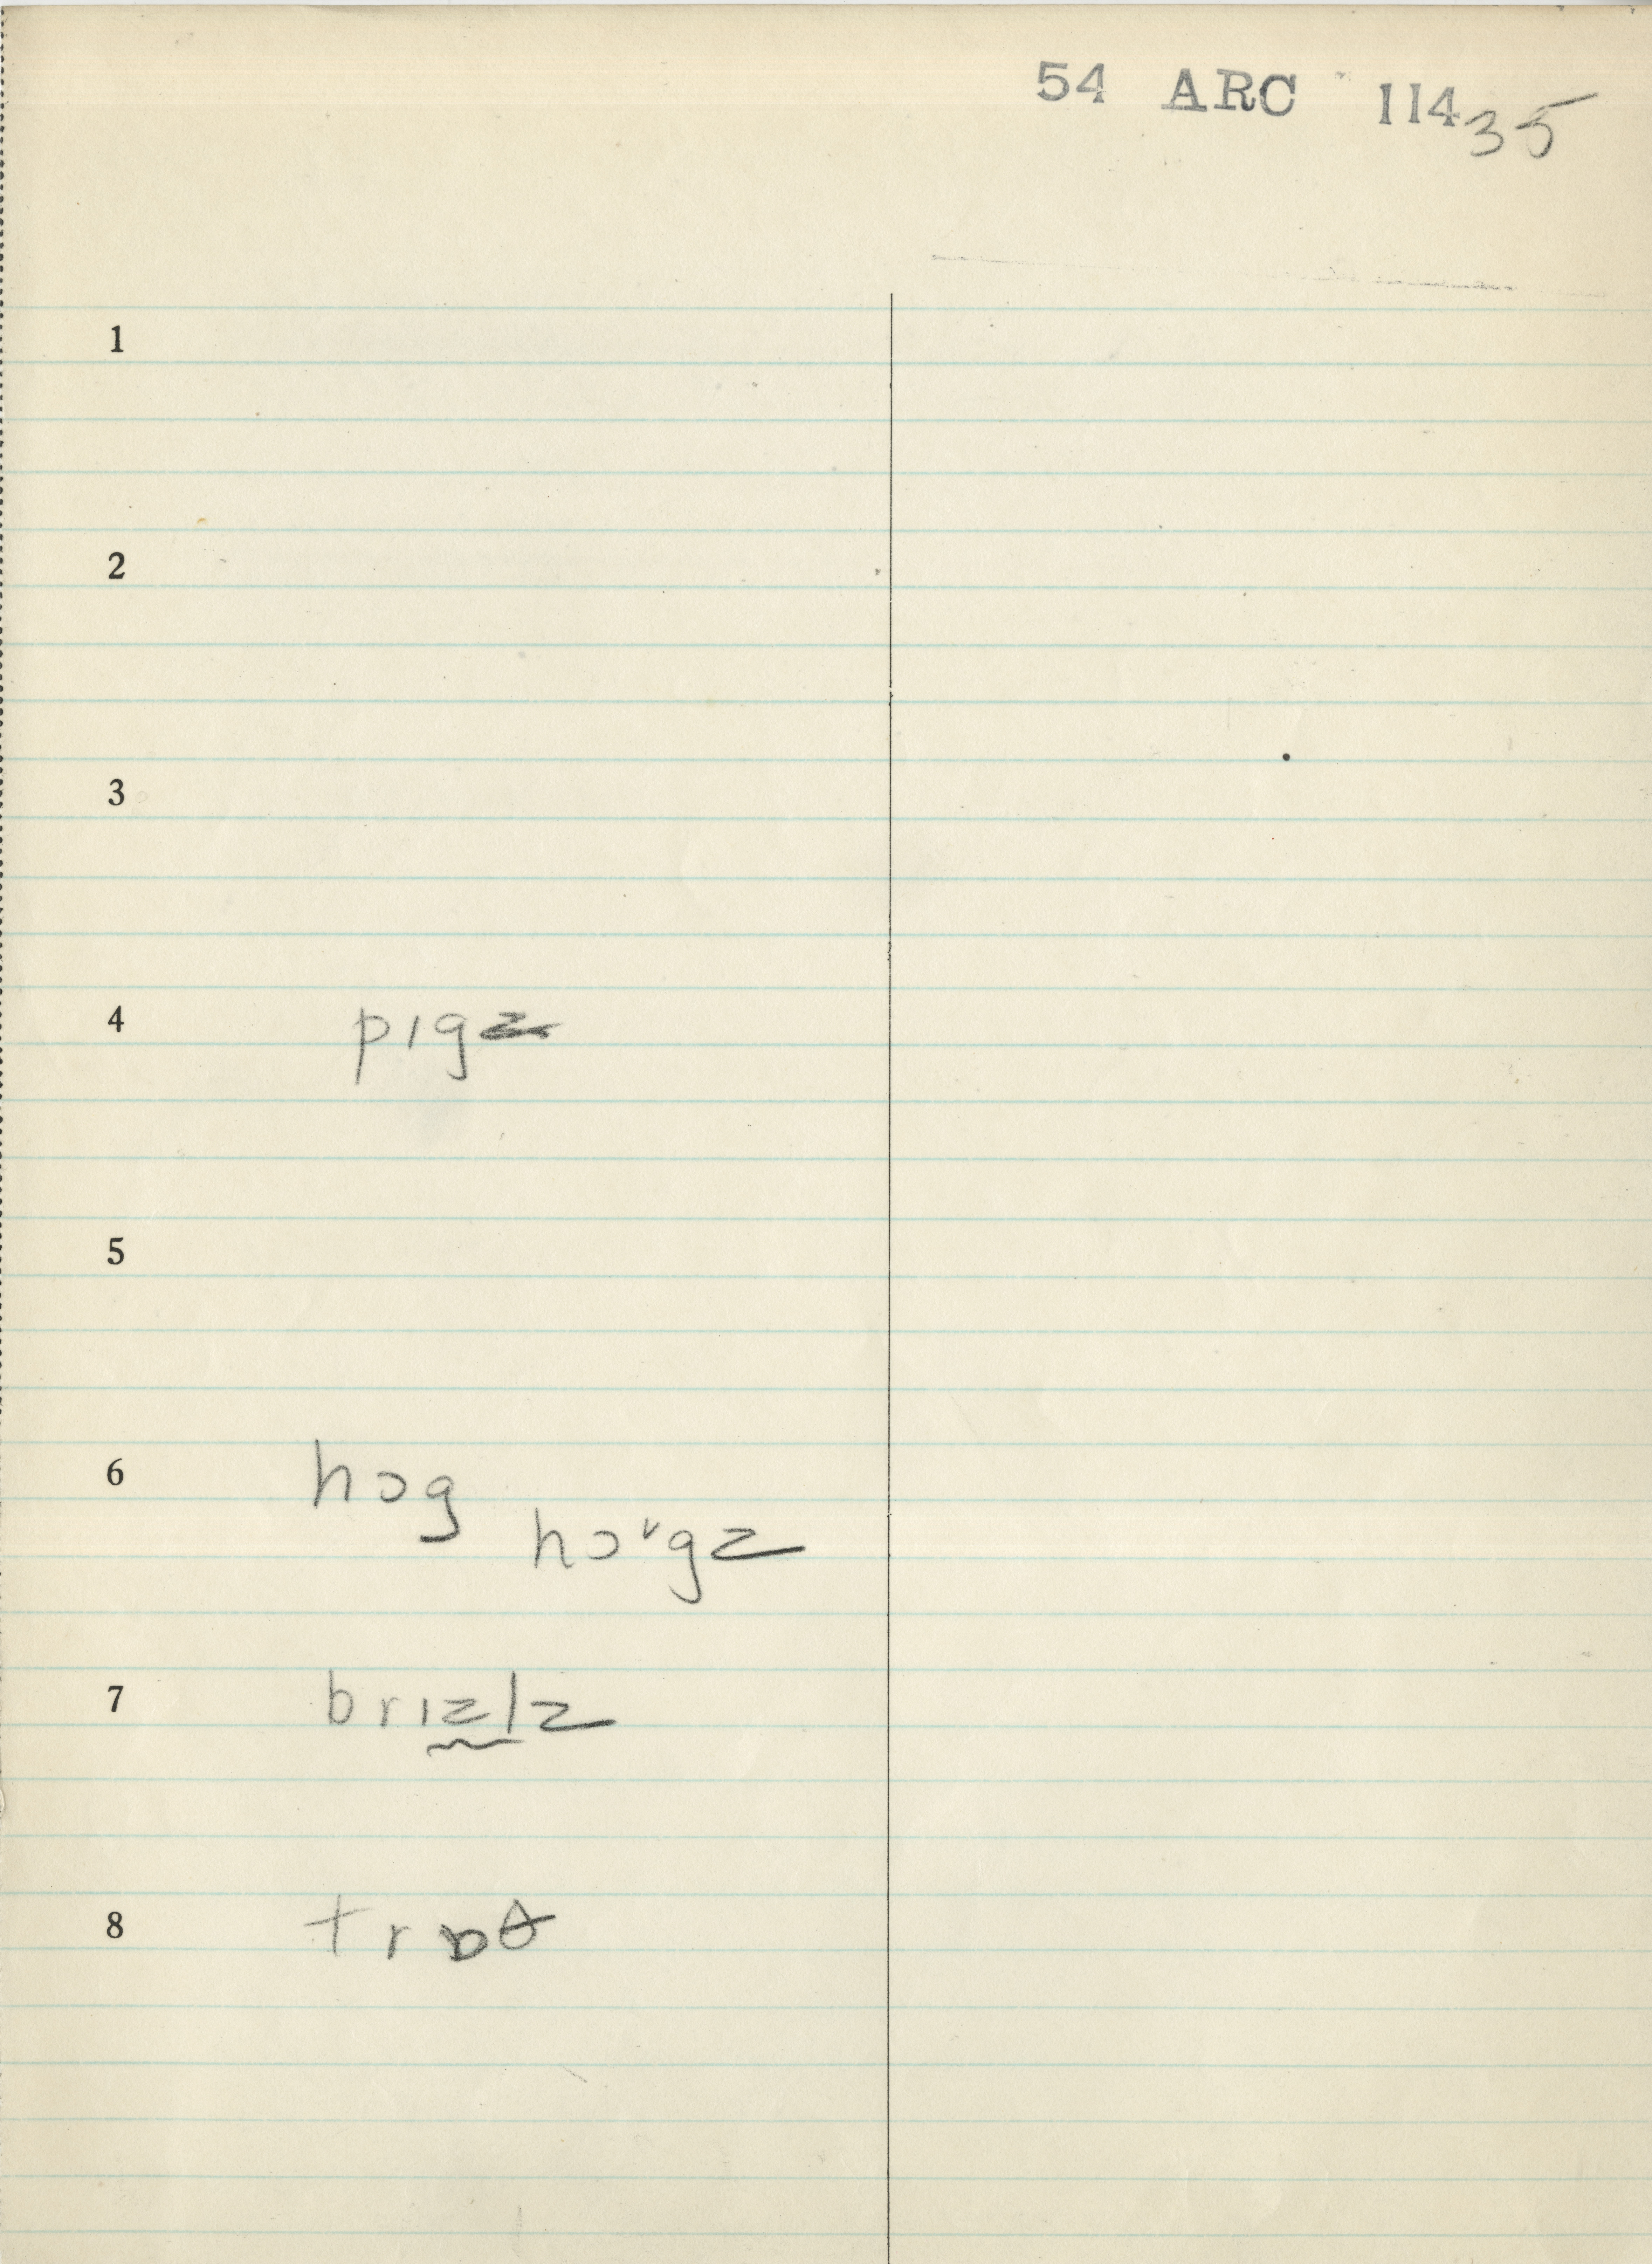 54 ARC 11435
1
2
3
4 pɪgz
5
6 hɔg
hɔˇgz
7 brɪzlz
8 trɒθ